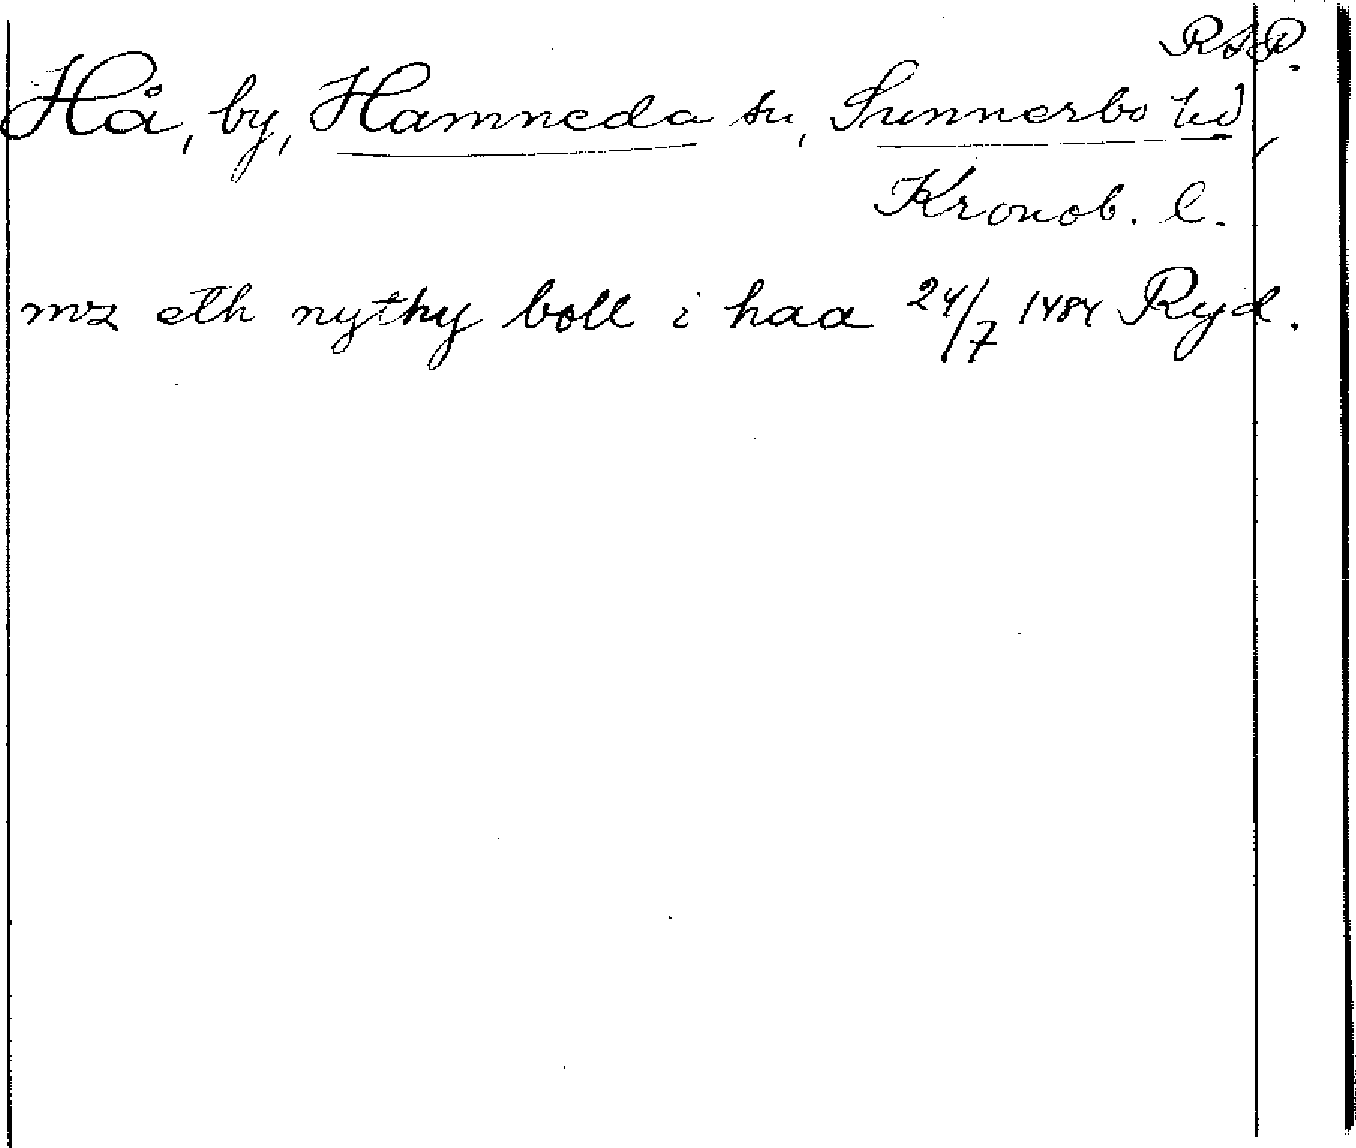 RAP.
Hå, by, Hamneda sn, Sunnerbo hd,
Kronob. l.
mz eth nythy boll i haa 24/7 1484 Ryd.